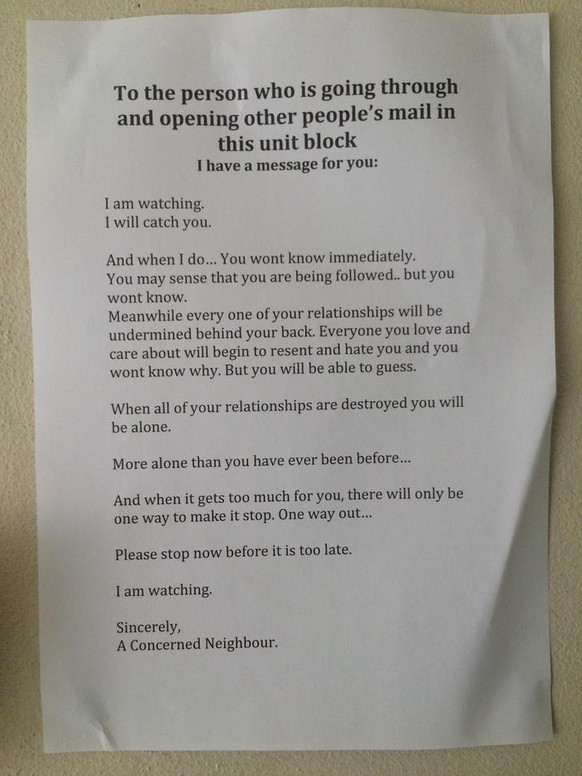 To the person who is going through
and opening other people's mail in
this unit block
I have a message for you:
I am watching.
I will catch you.
And when I do... You wont know immediately.
You may sense that you are being followed.. but you
wont know.
Meanwhile every one of your relationships will be
undermined behind your back. Everyone you love and
care about will begin to resent and hate you and you
wont know why. But you will be able to guess.
When all of your relationships are destroyed you will
be alone.
More alone than you have ever been before...
And when it gets too much for you, there will only be
one way to make it stop. One way out...
Please stop now before it is too late.
I am watching.
Sincerely,
A Concerned Neighbour.